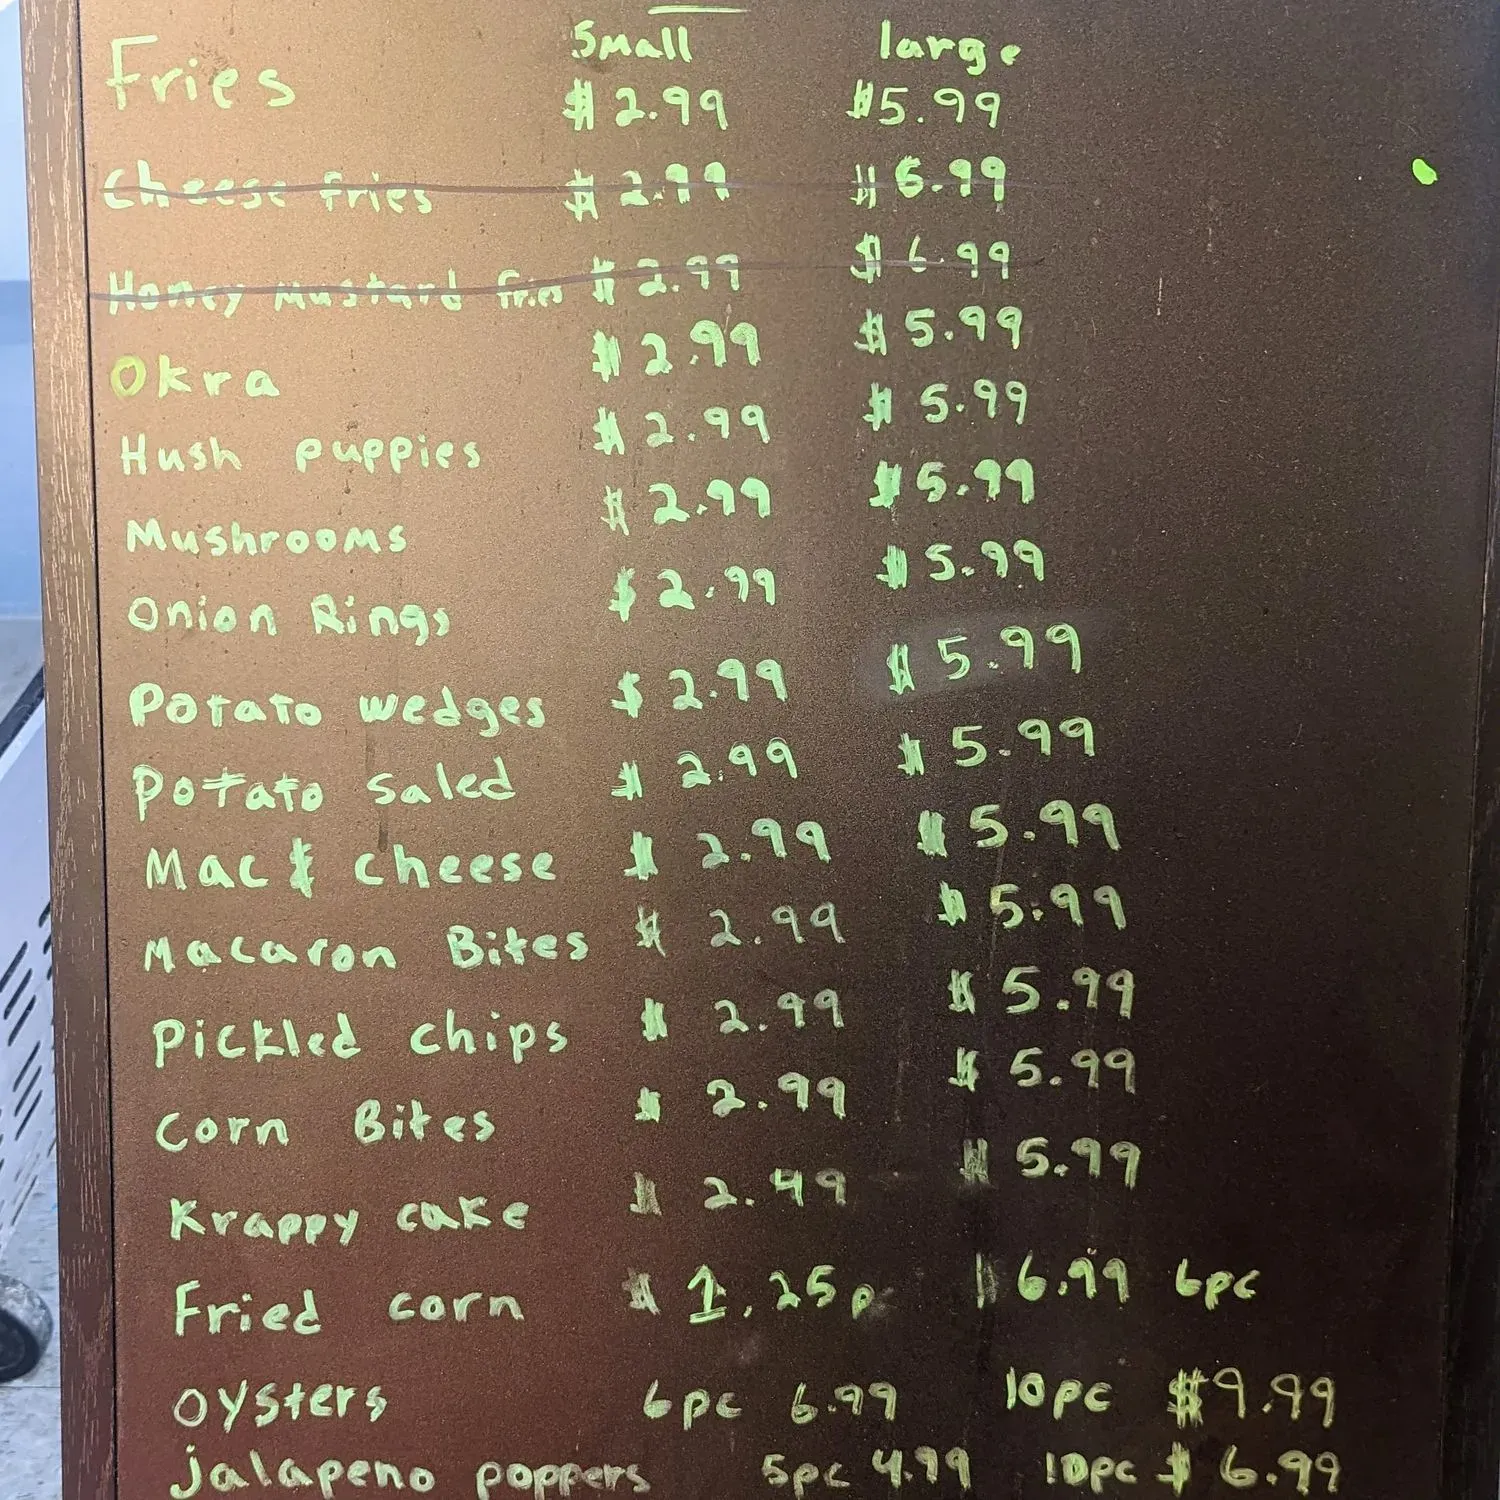 Small large
Fries $2.99 $5.99
Cheese fries $2.99 $6.99
Honey Mustard fries $2.99 $6.99
Okra $2.99 $5.99
Hush puppies $2.99 $5.99
Mushrooms $2.99 $5.99
Onion Rings $2.99 $5.99
Potato wedges $2.99 $5.99
Potato saled $2.99 $5.99
Mac & cheese $2.99 $5.99
Macaron Bites $2.99 $5.99
Pickled chips $2.99 $5.99
Corn Bites $2.99 $5.99
Krappy cake $2.99 $5.99
Fried corn $1.25p $6.99 6pc
Oysters 6pc 6.99 10pc $9.99
jalapeno poppers 5pc 4.99 10pc $6.99